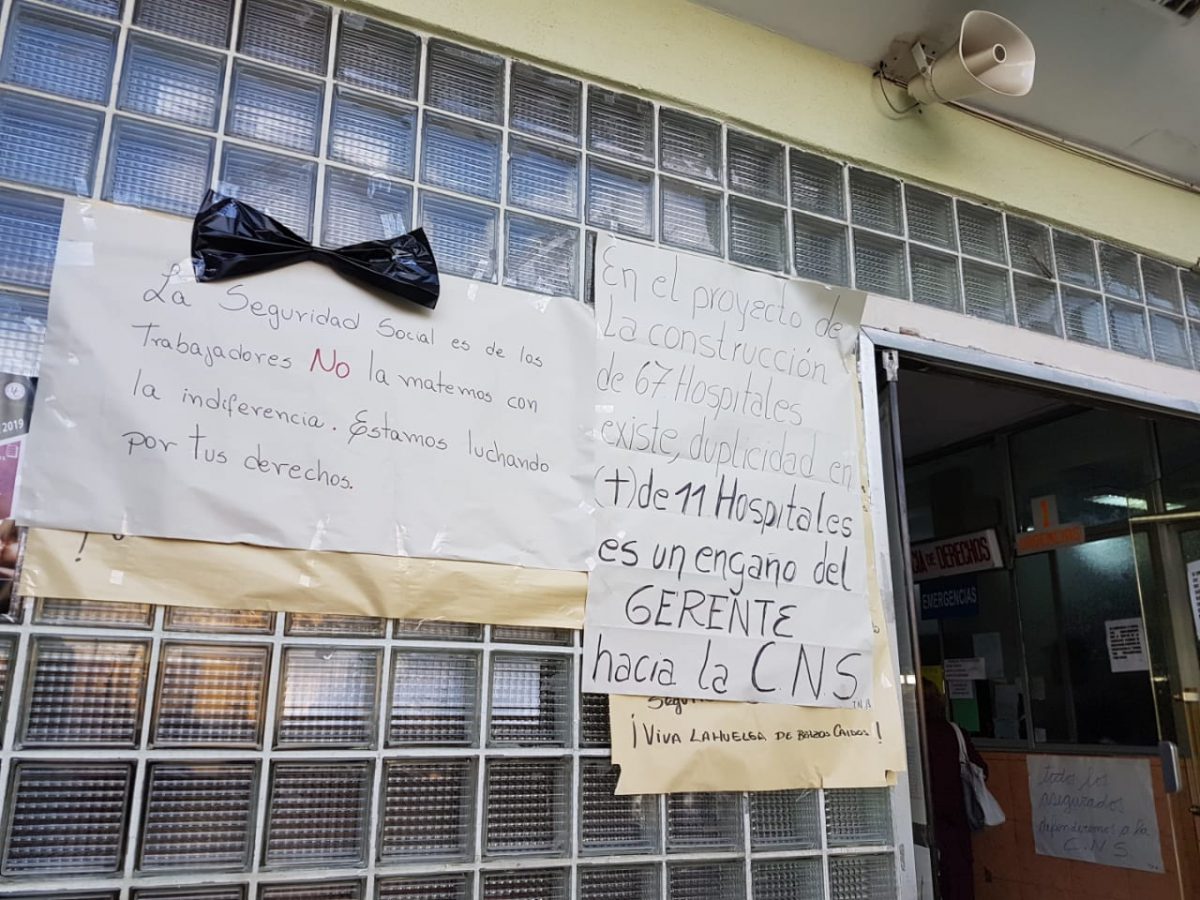 La Seguridad Social es de los
Trabajadores No la matemos con
la indiferencia. Estamos luchando
por tus derechos.
!
En el proyecto de
La construcción
de 67 Hospitales
existe, duplicidad en
(+) de 11 Hospitales
es un engaño del
GERENTE
hacia la C.N.S
¡VIVA LA HUELGA DE BRAZOS CAIDOS!
2019
DE DERECHOS
EMERGENCIAS
1
todos los
asegurados
defenderemos a la
C.N.S.